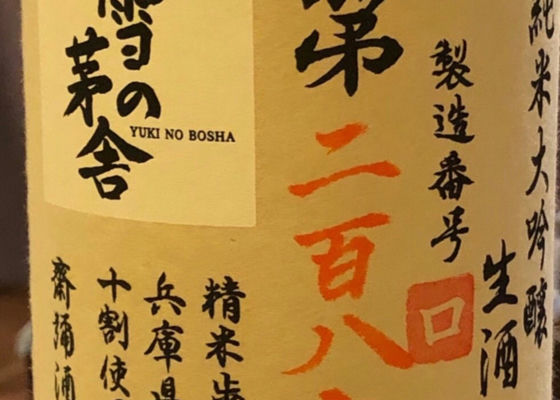 純米大吟醸
生酒
製造番号
口
第
二百八
雪の
茅舎
YUKI NO BOSHA
精米歩
兵庫県
十割使
齋彌酒